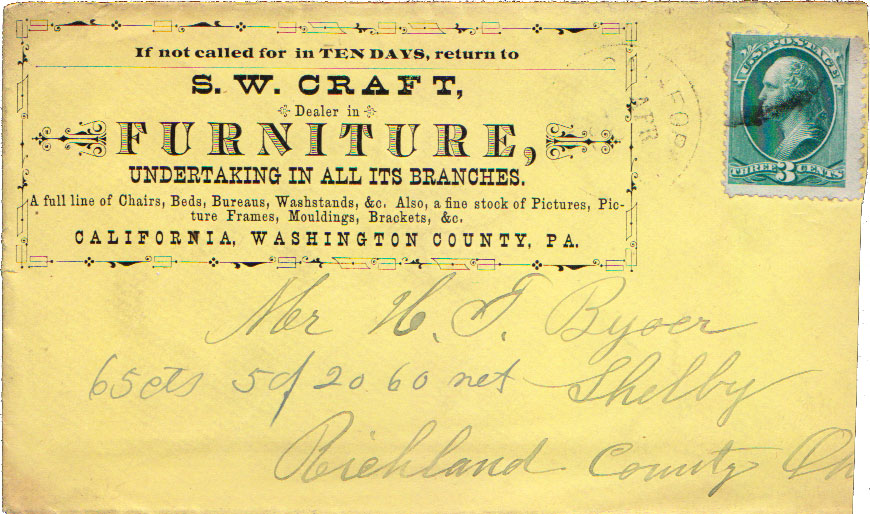 If not called for in TEN DAYS, return to
S. W. CRAFT,
Dealer in
FURNITURE,
UNDERTAKING IN ALL ITS BRANCHES.
A full line of Chairs, Beds, Bureaus, Washstands, &c. Also, a fine stock of Pictures, Pic-
ture Frames, Mouldings, Brackets, &c.
CALIFORNIA, WASHINGTON COUNTY, PA.
U.S. POSTAGE
THREE 3 CENTS
APR
Mr H. T.
65cts 5 of 20 60 net Shelby
Richland County Oh